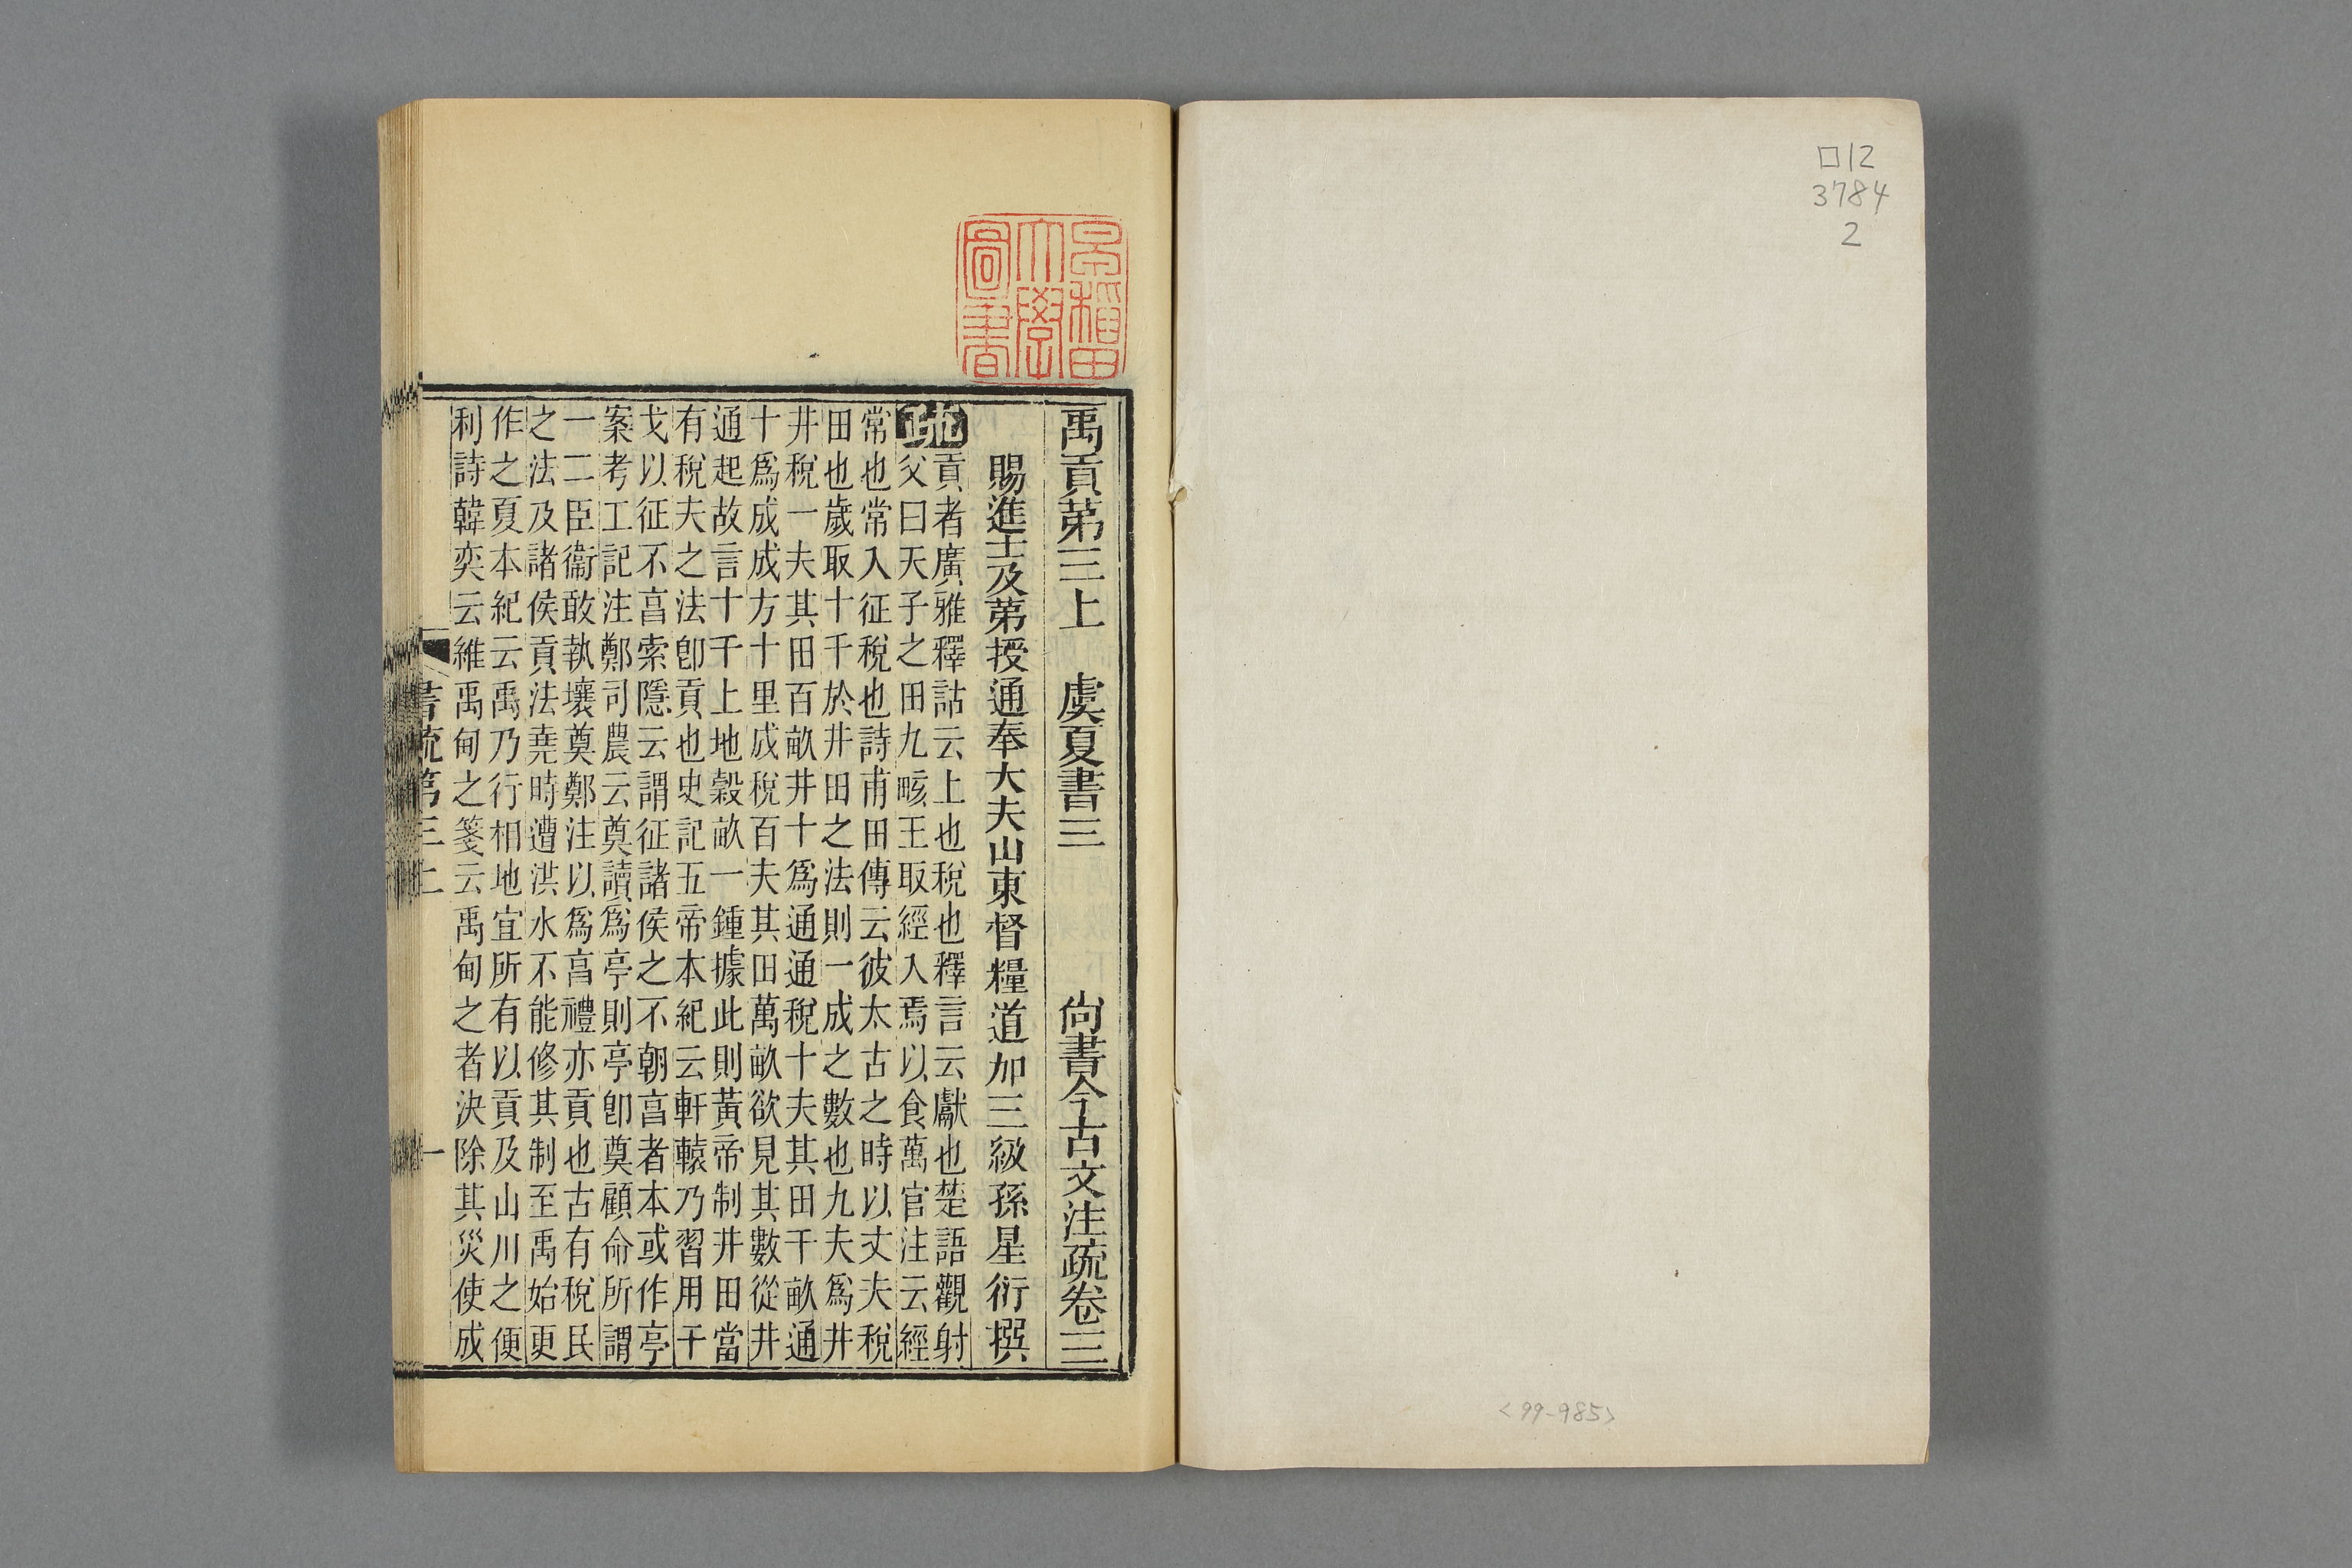 口12
3784
2
<99-985>
早稲田
大學
圖書
禹貢第三上 虞夏書三 尙書今古文注疏卷三
賜進士及第授通奉大夫山東督糧道加三級孫星衍撰
疏
貢者廣雅釋詁云上也稅也釋言云獻也楚語觀射
父曰天子之田九畡王取經入焉以食萬官注云經
常也常入征稅也詩甫田傳云彼太古之時以丈夫稅
田也歲取十千於井田之法則一成之數也九夫爲井
井稅一夫其田百畝井十爲通通稅十夫其田千畝通
十爲成成方十里成稅百夫其田萬畝欲見其數從井
通起故言十千上地穀畝一鍾據此則黃帝制井田當
有稅夫之法卽貢也史記五帝本紀云軒轅乃習用干
戈以征不亯索隱云謂征諸侯之不朝亯者本或作亭
案考工記注鄭司農云奠讀爲亭則亭卽奠顧命所謂
一二臣衞敢執壤奠鄭注以爲亯禮亦貢也古有稅民
之法及諸侯貢法堯時遭洪水不能修其制至禹始更
作之夏本紀云禹乃行相地宜所有以貢及山川之便
利詩韓奕云維禹甸之箋云禹甸之者決除其災使成
書疏第三上 一